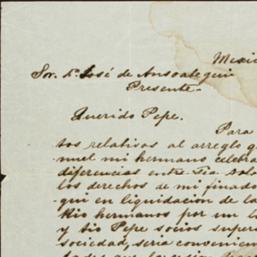 Mexic
Sor. Dn. José de Ansoategui
Presente.
Querido Pepe.
Para
tos relativos al arreglo q
nuel mi hermano celeb
diferencias entre Tia
los derechos de mi finado
qui en liquidación de la
tio hermanos por un l
y tio Pepe socios super
sociedad, seria convenien